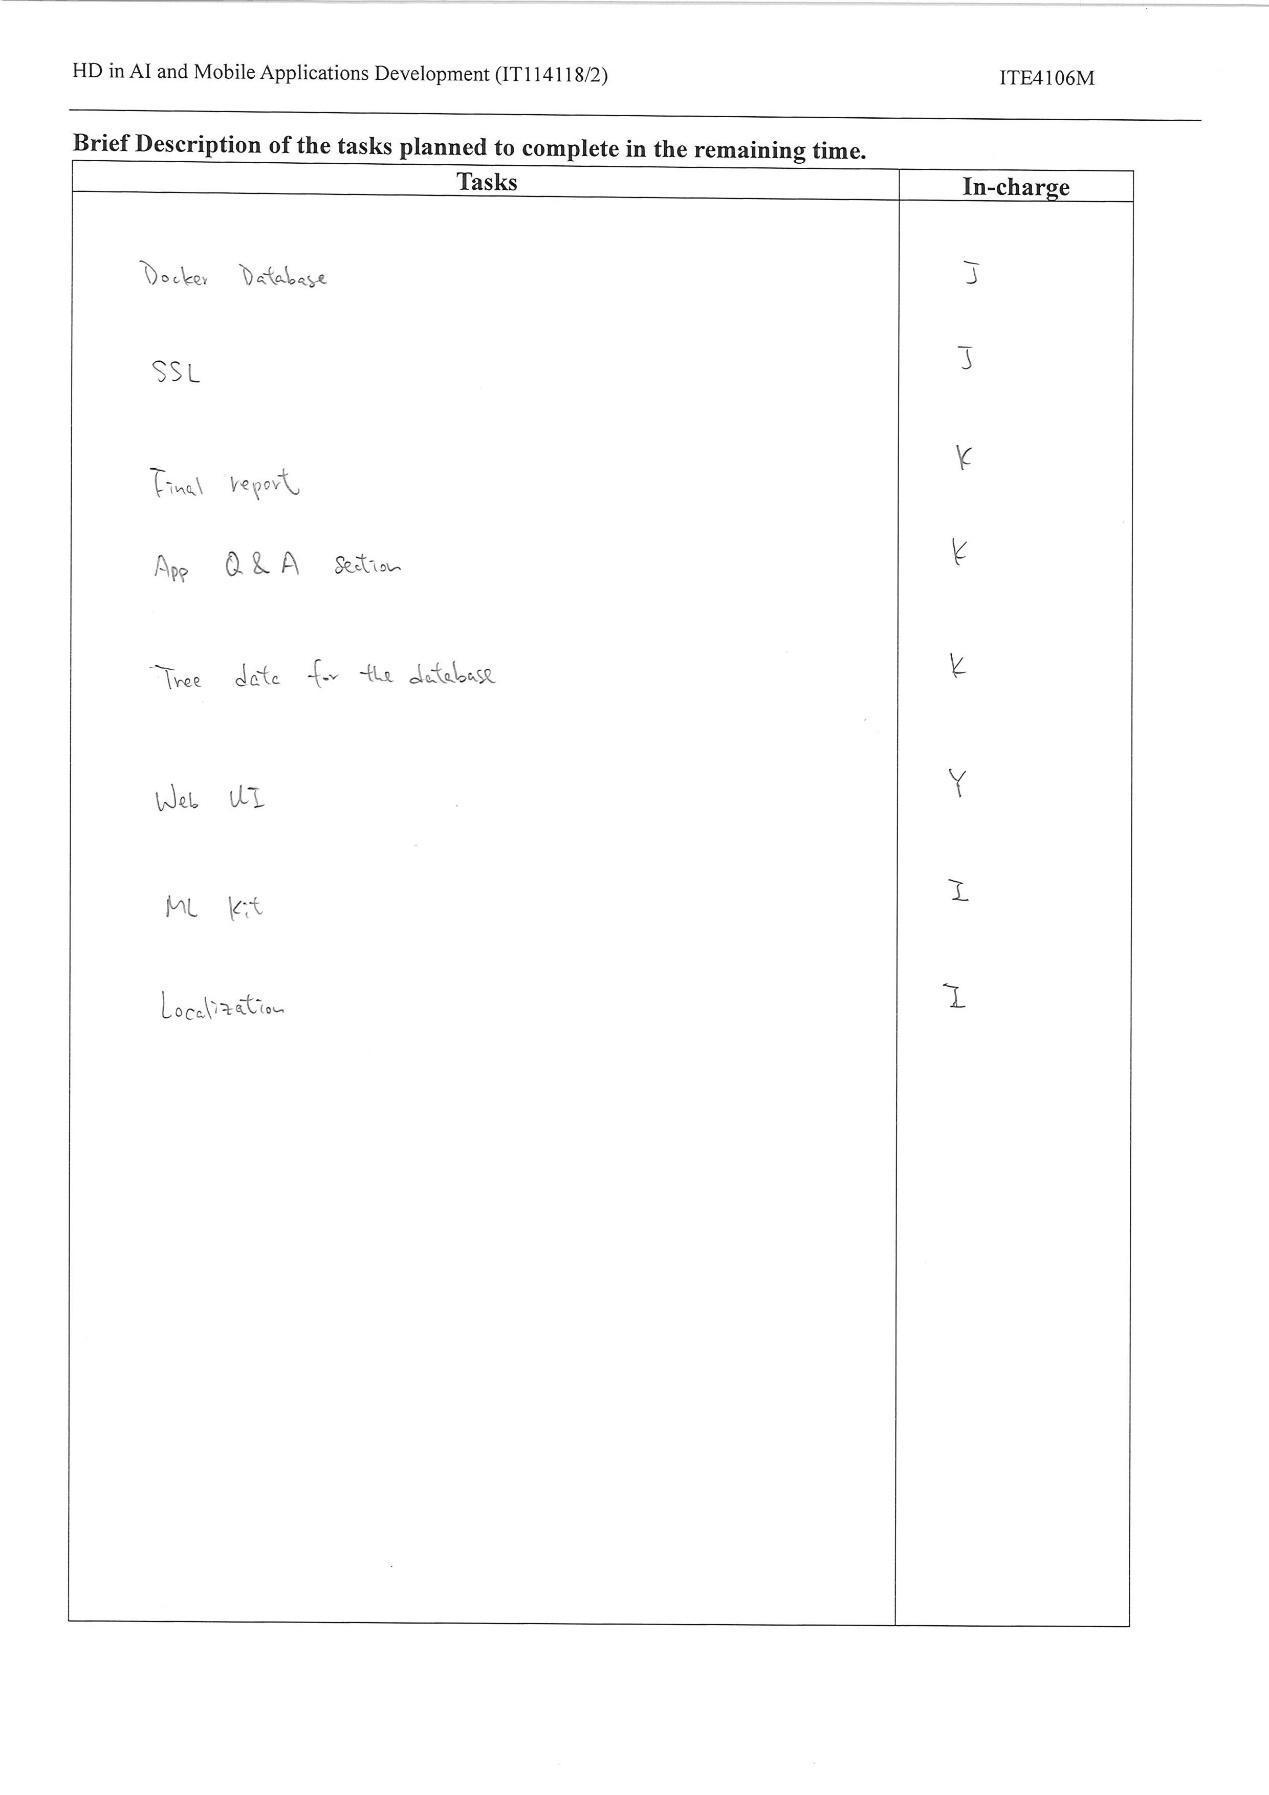 HD in AI and Mobile Applications Development (IT114118/2) ITE4106M
Brief Description of the tasks planned to complete in the remaining time.
Tasks In-charge
Docker Database J
SSL J
Final report K
App Q & A section K
Tree data for the database K
Web UI Y
ML Kit I
Localization I